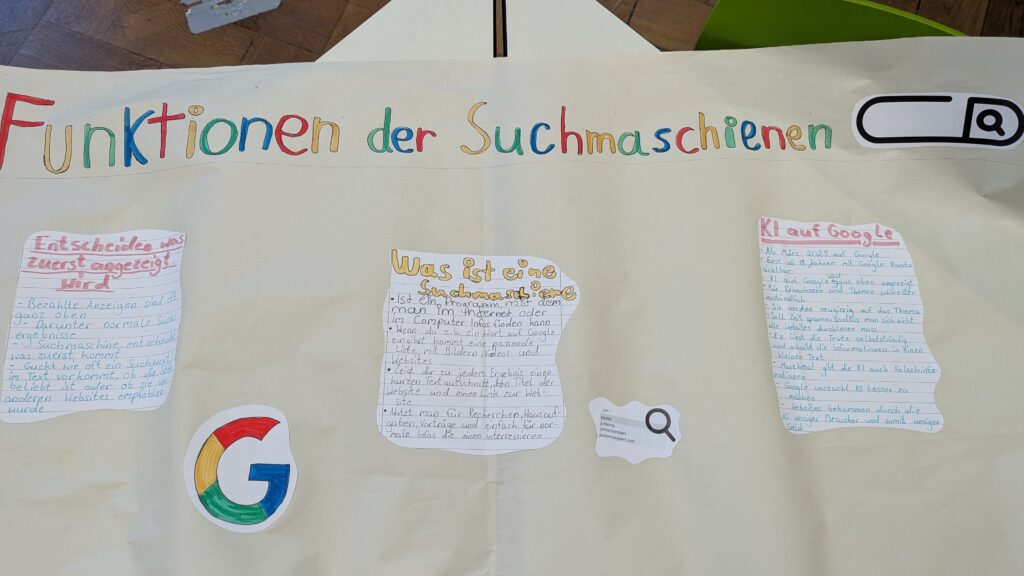 Funktionen der Suchmaschienen
Entscheiden was
zuerst angezeigt
wird
- Bezahlte Anzeigen sind oft
ganz oben
- Darunter normale Such
ergebnisse
- Suchmaschine entscheidet
was zuerst kommt
- Guckt wie oft ein Suchwort
im Text vorkommt, ob die Seite
beliebt ist oder ob sie von
anderen Websites empfohlen
wurde
Was ist eine
Suchmaschiene
• Ist ein Programm, mit dem
man im Internet oder
im Computer Infos finden kann
• Wenn du z.b. ein Wort auf Google
eingibst kommt eine passende
Liste mit Bildern, Videos und
Websites
• Zeigt dir zu jedem Ergebnis einen
kurzen Textausschnitt, den Titel der
Website und einen Link zur Web-
site
• Nutzt man für Recherchen, Hausauf-
gaben, Vorträge und einfach für nor-
male Infos die einen interessieren
KI auf Google
- Ab März 2025 auf Google
- Erst ab 18 Jahren mit Google Konto
sichtbar
- KI auf Google wird ganz oben angezeigt
- für Erwachsene und Themen
verständlich
- Sie werden neugierig auf das Thema
- Soll Zeit sparen, sodass man sich nicht
alle Websites durchlesen muss
- Es liest die Texte selbstständig
und schreibt die Informationen in einen
kleinen Text
- Manchmal gibt die KI auch Falschinfor-
mationen
- Google versucht KI besser zu
machen
- Websites bekommen durch die
KI weniger Besucher und somit weniger
Geld
G